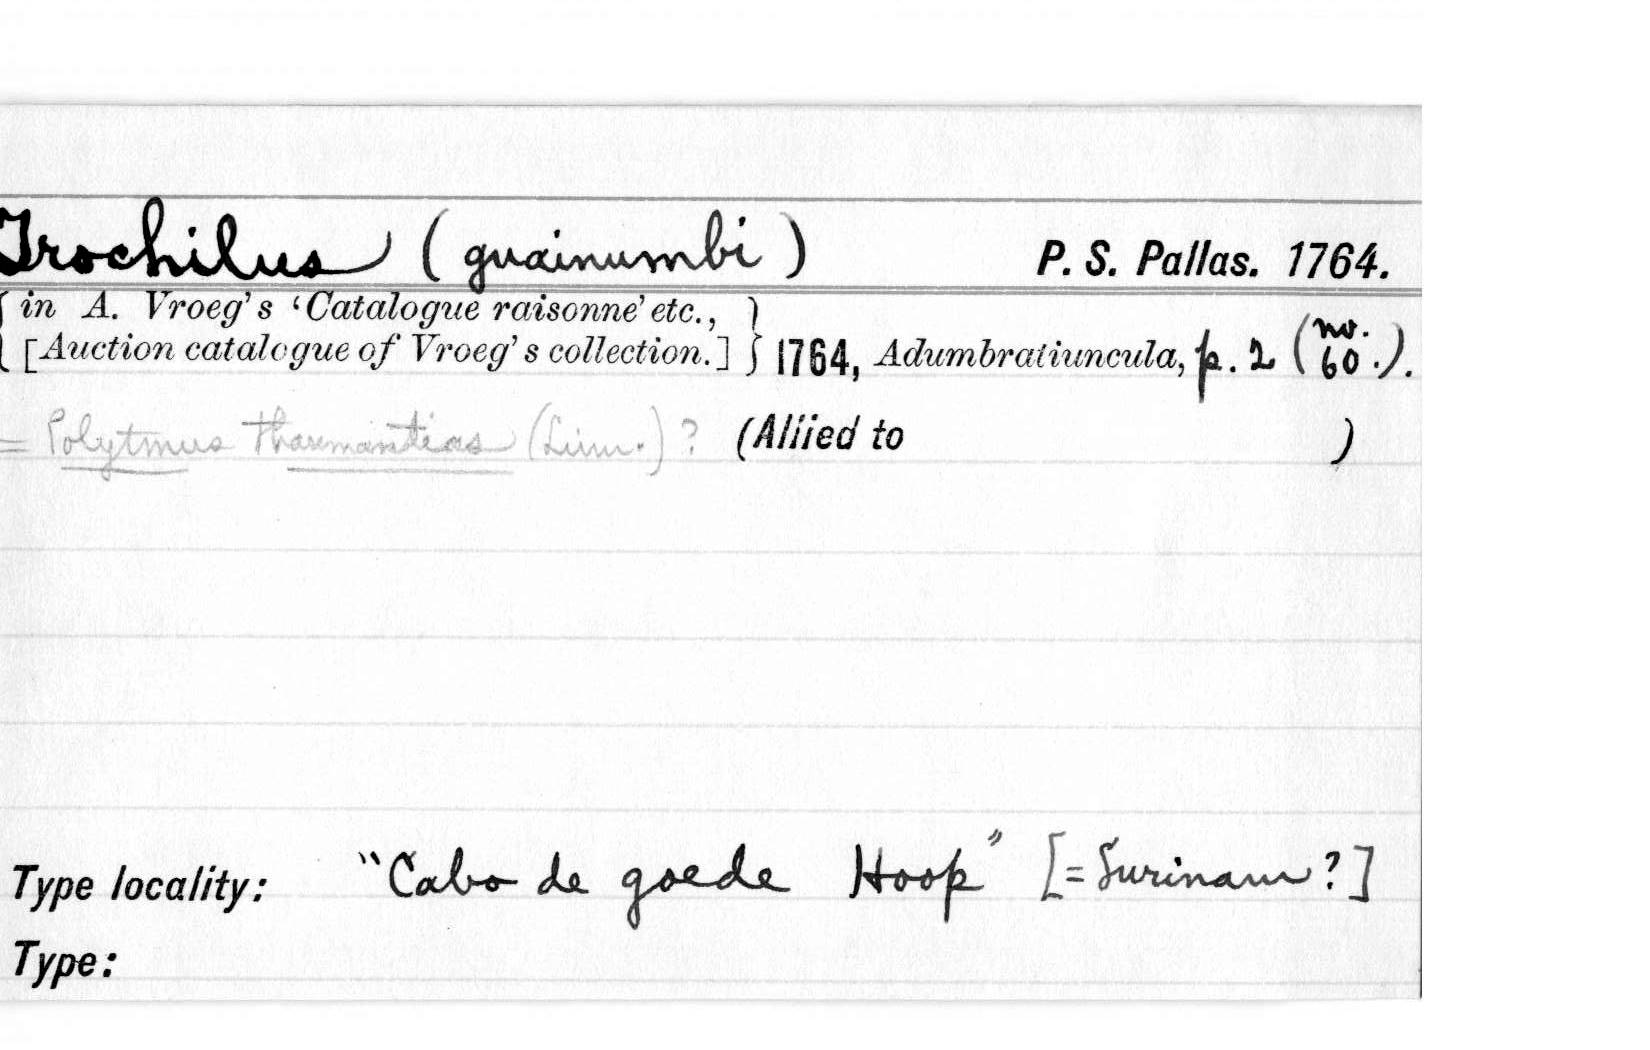 Trochilus (guainumbi) P. S. Pallas. 1764.
{ in A. Vroeg's ‘Catalogue raisonne’ etc., }
[Auction catalogue of Vroeg's collection.] 1764, Adumbratiuncula, p. 2 (no. 60.).
= Polytmus thaumantias (Linn.) ? (Allied to )
Type locality: "Cabo de goede Hoop" [= Surinam ?]
Type: